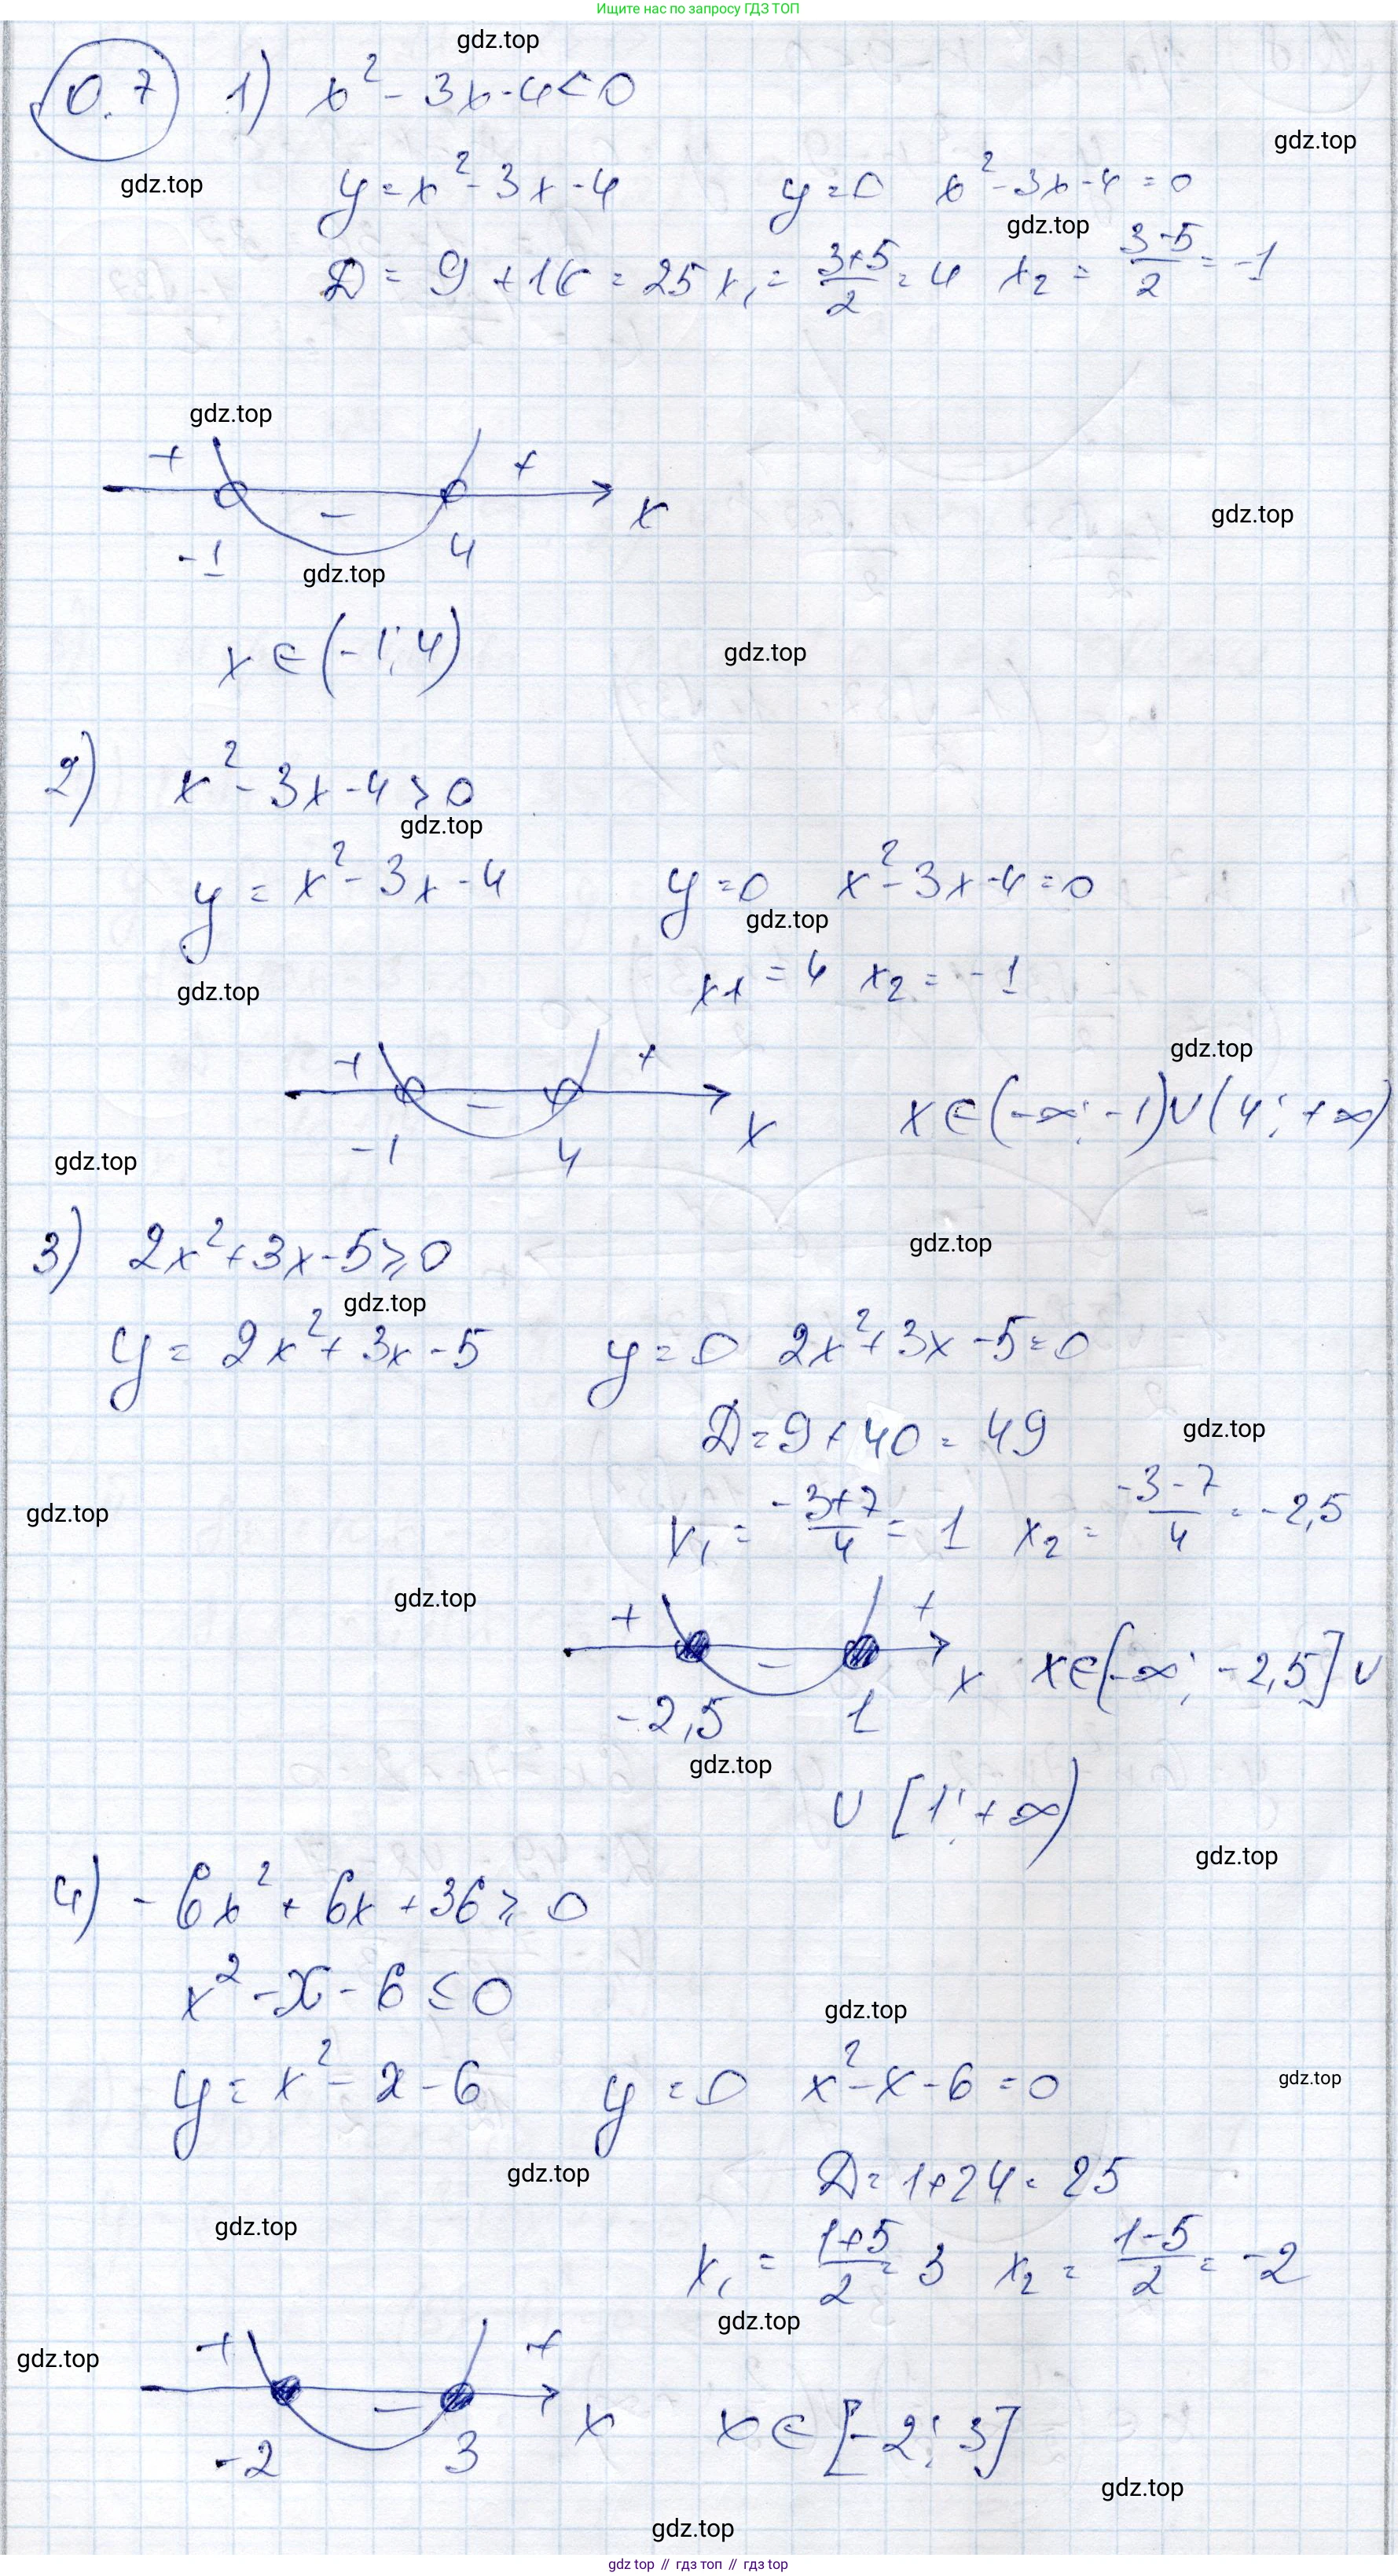 Ищите нас по запросу ГДЗ ТОП
gdz.top
0.7 1) x² - 3x - 4 < 0
gdz.top
gdz.top
y = x² - 3x - 4 y = 0 x² - 3x - 4 = 0
gdz.top
D = 9 + 16 = 25 x₁ = (3+5)/2 = 4 x₂ = (3-5)/2 = -1
gdz.top
+ +
- x
gdz.top
-1 4
gdz.top
x ∈ (-1; 4)
gdz.top
2) x² - 3x - 4 > 0
gdz.top
y = x² - 3x - 4 y = 0 x² - 3x - 4 = 0
gdz.top
x₁ = 4 x₂ = -1
gdz.top
gdz.top
+ - +
-1 4 x x ∈ (-∞; -1) ∪ (4; +∞)
gdz.top
3) 2x² + 3x - 5 ⩾ 0
gdz.top
gdz.top
y = 2x² + 3x - 5 y = 0 2x² + 3x - 5 = 0
D = 9 + 40 = 49
gdz.top
gdz.top
x₁ = (-3+7)/4 = 1 x₂ = (-3-7)/4 = -2,5
gdz.top
+ - +
-2,5 1 x x ∈ (-∞; -2,5] ∪
gdz.top
∪ [1; +∞)
gdz.top
4) -6x² + 6x + 36 ⩾ 0
x² - x - 6 ≤ 0
gdz.top
y = x² - x - 6 y = 0 x² - x - 6 = 0
gdz.top
D = 1 + 24 = 25
gdz.top
gdz.top
x₁ = (1+5)/2 = 3 x₂ = (1-5)/2 = -2
gdz.top
gdz.top
+ - +
-2 3 x x ∈ [-2; 3]
gdz.top
gdz.top
gdz top // гдз топ // gdz top